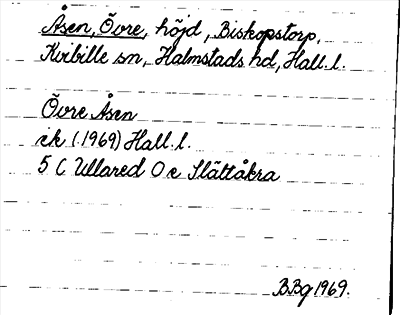 Åsen, Övre, höjd, Biskopstorp,
Kvibille sn, Halmstads hd, Hall. l.
Övre Åsen
ek (1969) Hall. l.
5 C Ullared O e Slättåkra
BBg 1969.